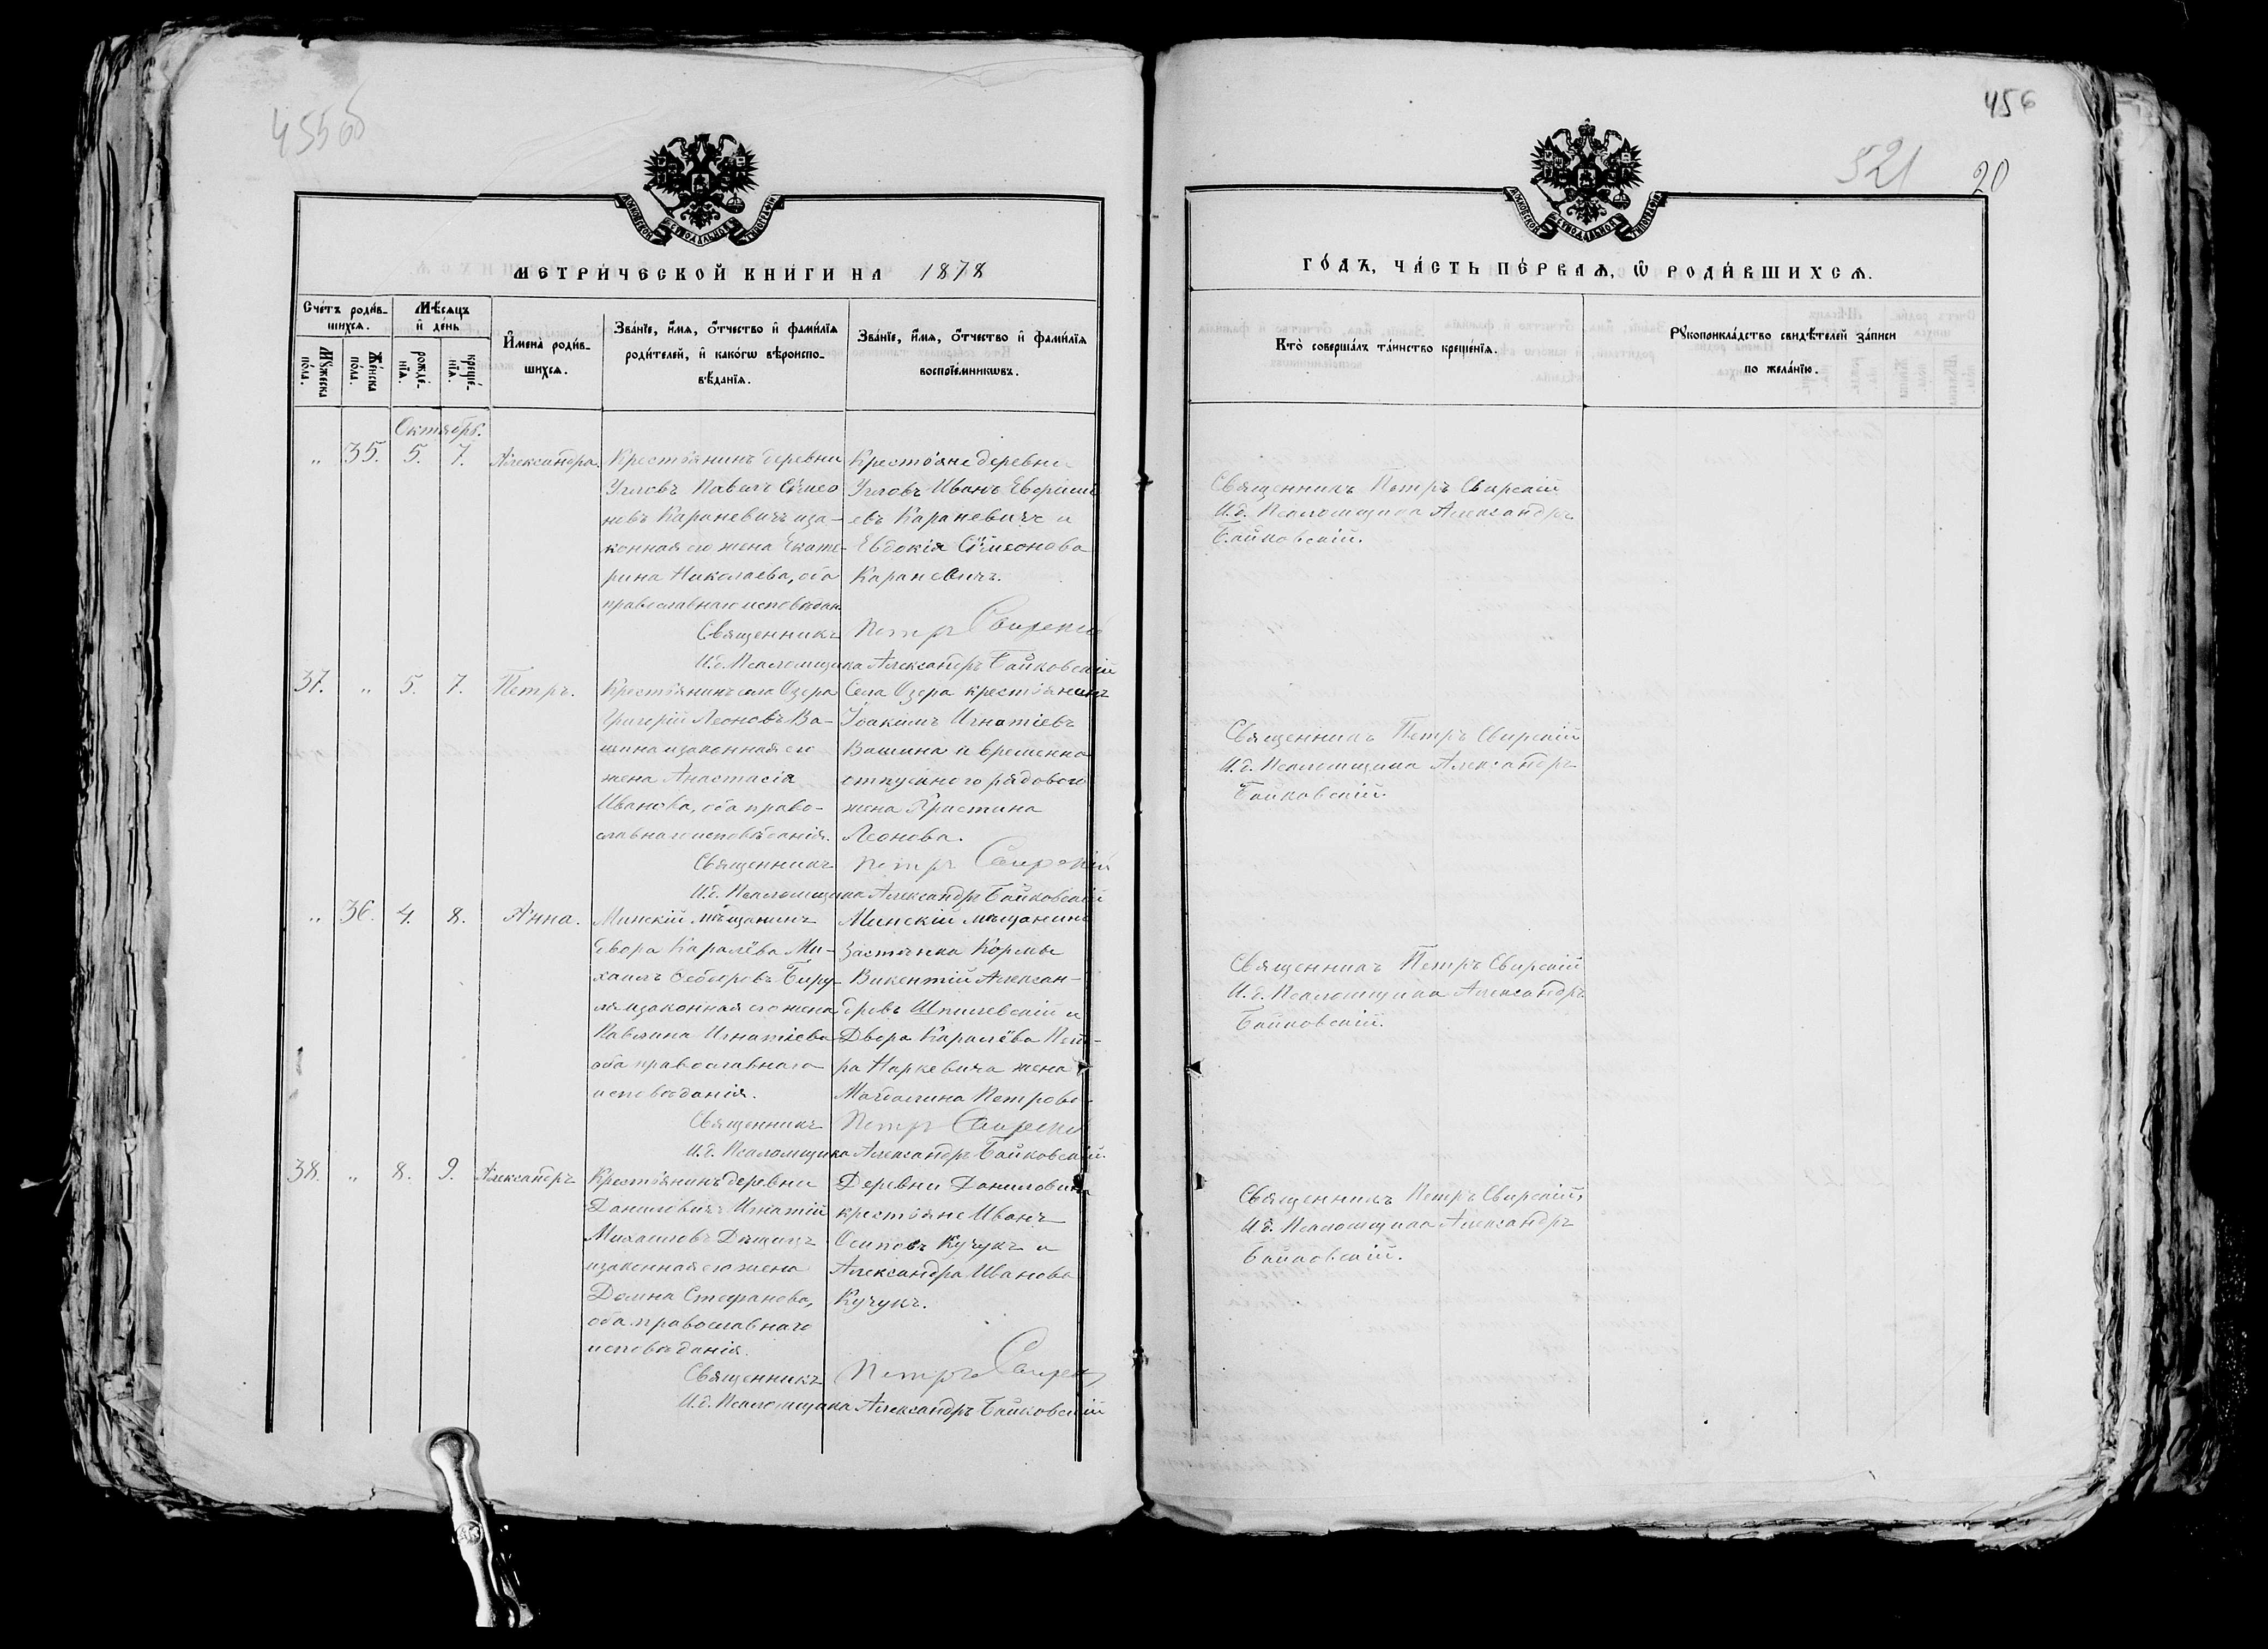 455об
МЕТРИ́ЧЕСКОЙ КНИ́ГИ НА 1878
Сче́тъ роди́в-
шихсѧ.
Мѣ́сѧцъ
и҆ де́нь
Мꙋ́жеска
по́ла.
Же́нска
по́ла.
рожде́-
нїѧ.
креще́-
нїѧ.
И҆мена̀ роди́в-
шихсѧ.
Зва́нїе, и҆́мѧ, ѻ҆́тчество и҆ фами́лїѧ
роди́телей, и҆ како́гѡ вѣроиспо-
вѣ́данїѧ.
Зва́нїе, и҆́мѧ, ѻ҆́тчество и҆ фами́лїѧ
воспрїе́мникѡвъ.
Октябрь.
" 35. 5. 7. Александра.
Крестьянинъ деревни
Угловъ Павелъ Сѵмео
новъ Караневичъ иза-
конная его жена Екате-
рина Николаева, оба
православнаго исповѣдан.
Крестьяне деревни
Угловъ Иванъ
евъ Караневичъ и
Евдокія Сѵмеонова
Караневичъ.
Священникъ Петръ Свирскій
И.д. Псаломщика Александръ Байковскій
37. " 5. 7. Петръ.
Крестьянинъ села Озера
Григорій Леоновъ Ва-
шина изаконная его
жена Анастасія
Иванова, оба право-
славнаго исповѣданія.
Села Озера крестьянинъ
Іоакимъ Игнатіевъ
Вашина и временно
отпускного рядового
жена Христина
Леонова.
Священникъ Петръ Свирскій
И.д. Псаломщика Александръ Байковскій
" 36. 4. 8. Анна.
Минскій мѣщанинъ
двора Каралёва Ми-
хаилъ
изаконная его жена
Павлина Игнатіева
оба православнаго
исповѣданія.
Минскій мѣщанинъ
Застѣнка Кормы
Викентій Алексан-
дровъ Шпилевскій и
Двора Каралёва Пет-
ра Наркевича жена
Магдалина Петрова
Священникъ Петръ Свирскій
И.д. Псаломщика Александръ Байковскій.
38. " 8. 9. Александръ
Крестьянинъ деревни
Даниловичъ Игнатій
Михаиловъ
изаконная его жена
Домна Стефанова,
оба православнаго
исповѣданія.
Деревни Даниловичъ
крестьяне Иванъ
Осиповъ Кучукъ и
Александра Иванова
Кучукъ.
Священникъ Петръ Свирскій
И.д. Псаломщика Александръ Байковскій
456
521 20
ГО́ДЪ, ЧА́СТЬ ПЕ́РВАѦ, Ѽ РОДИ́ВШИХСѦ.
Кто̀ соверша́лъ та́инство креще́нїѧ.
Рꙋкоприкла́дство свидѣ́телей за́писи
по жела́нїю.
Священникъ Петръ Свирскій
И.д. Псаломщика Александръ
Байковскій.
Священникъ Петръ Свирскій
И.д. Псаломщика Александръ
Байковскій.
Священникъ Петръ Свирскій
И.д. Псаломщика Александръ
Байковскій.
Священникъ Петръ Свирскій,
И.д. Псаломщика Александръ
Байковскій.